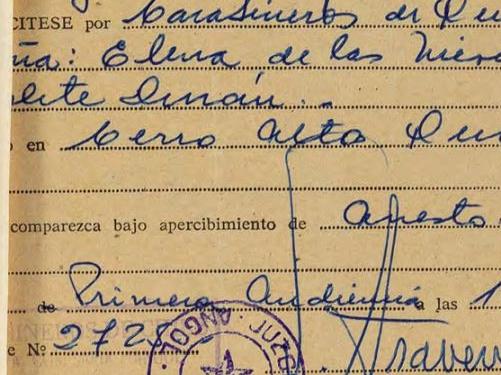 CITESE por Carabineros de
ña: Elena de las
en Cerro Alto
comparezca bajo apercibimiento de Arresto
de Primera Audiencia a las 1
e Nº 2725
JUZG
ANGOL